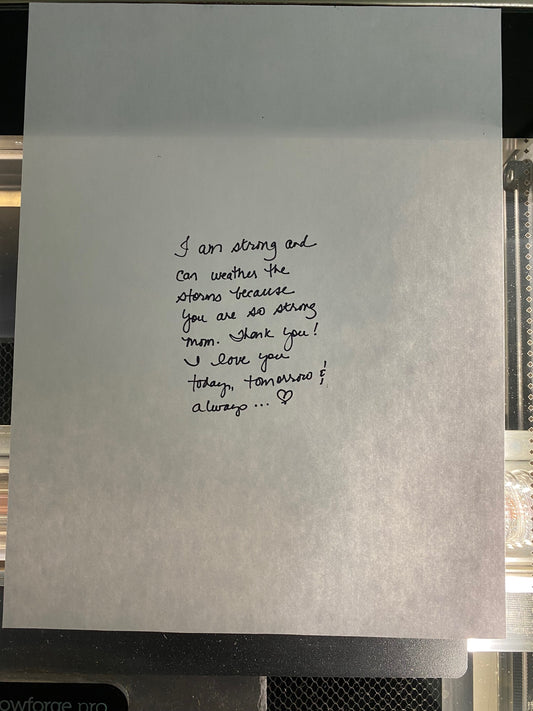 I am strong and
can weather the
storms because
you are so strong
mom. Thank you!
I love you
today, tomorrow &
always... ♡
owforge pro